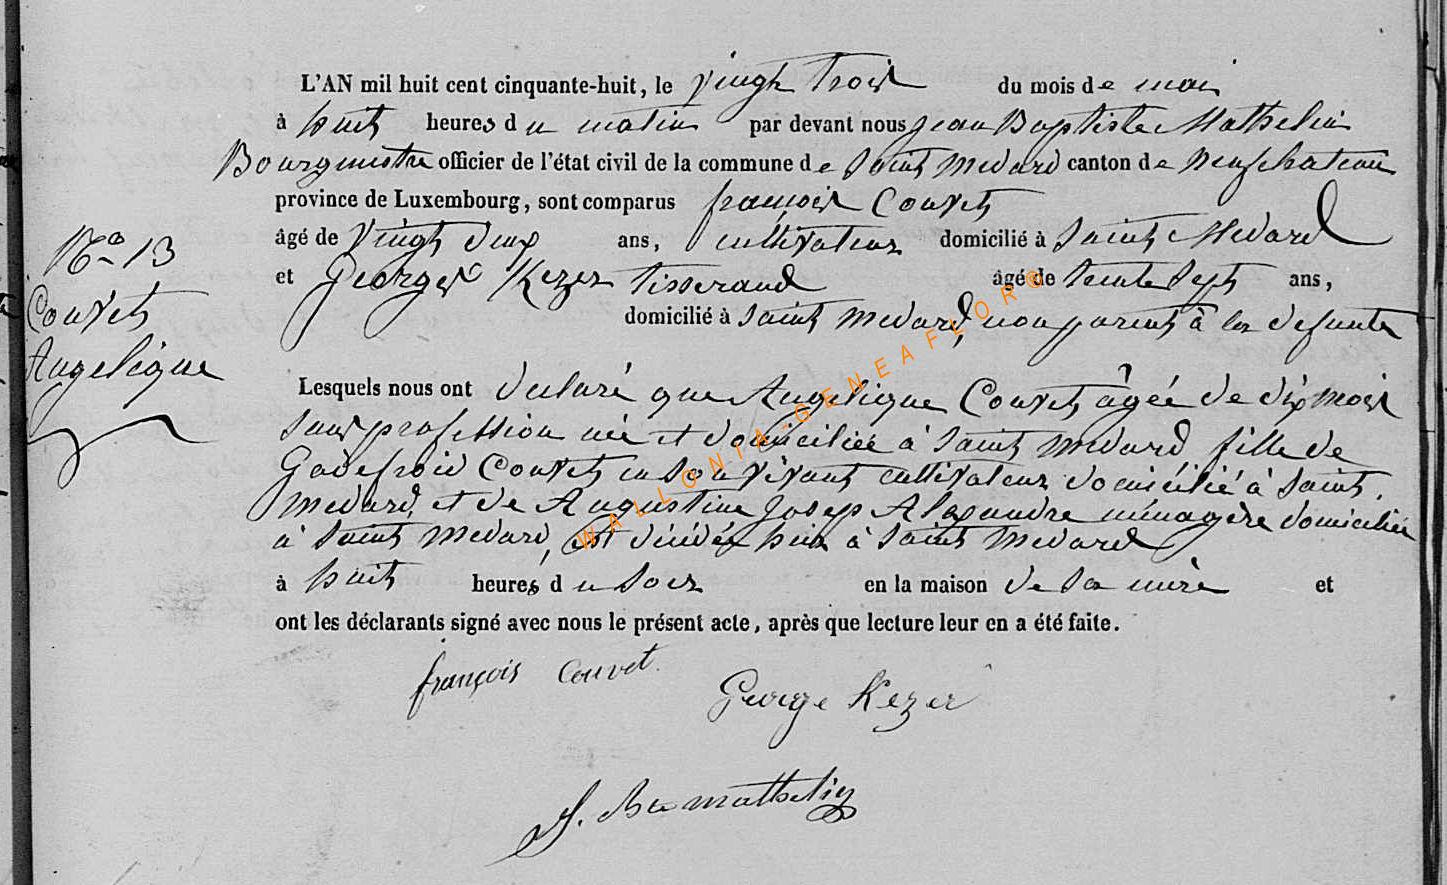 L'AN mil huit cent cinquante-huit, le vingt trois du mois de mai
à huit heures du matin par devant nous jean Baptiste Mathelin
Bourgmestre officier de l'état civil de la commune de Saint Medard canton de Neufchateau
province de Luxembourg, sont comparus françois Couvet
âgé de vingt deux ans, cultivateur domicilié à Saint Medard
et George Kezer tisserand âgé de trente sept ans,
domicilié à Saint Medard, non parent à la defunte
No 13
Couvet
Angelique
Lesquels nous ont declaré que Angelique Couvet âgée de dix mois
sans profession née et domiciliée à Saint Medard fille de
Godefroid Couvet en son vivant cultivateur domicilié à Saint
Medard, et de Augustine Josep Alexandre ménagère domiciliée
à Saint Medard, est décédée hier à Saint Medard
à huit heures du soir en la maison de sa mère et
ont les déclarants signé avec nous le présent acte, après que lecture leur en a été faite.
françois Couvet
George Kezer
J. Bte Mathelin
WALLONIA-GENEAFLOR®